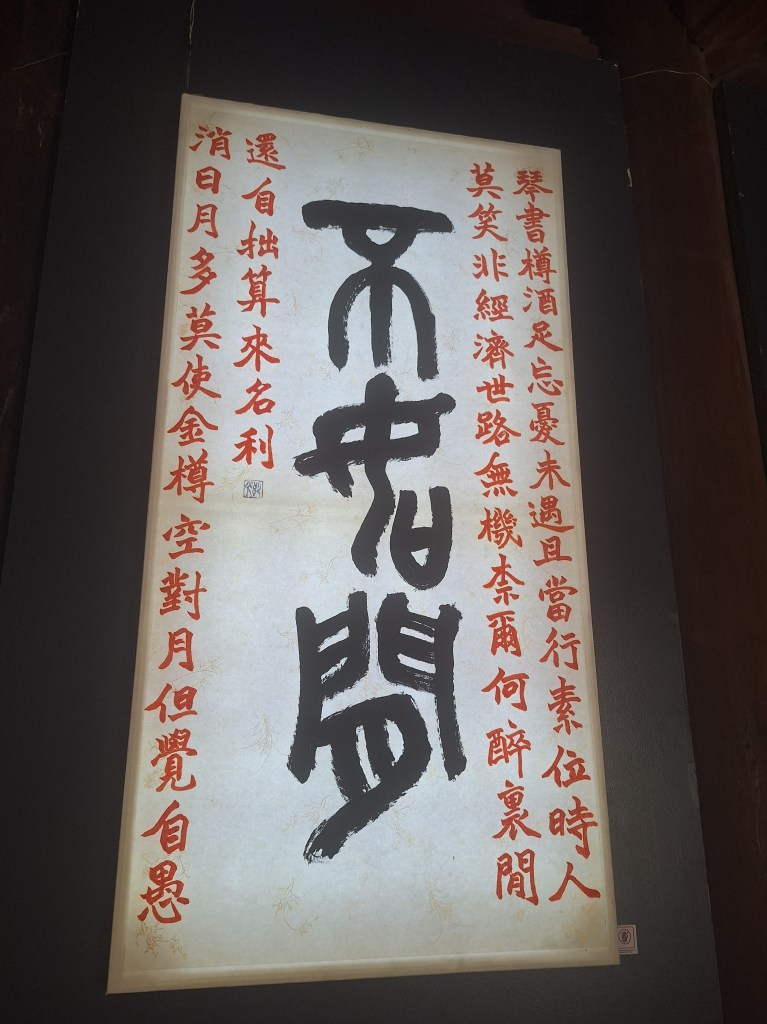 琴書樽酒足忘憂未遇且當行素位時人
莫笑非經濟世路無機柰爾何醉裏閒
消日月多莫使金樽空對月但覺自愚
還自拙算來名利
不如閒